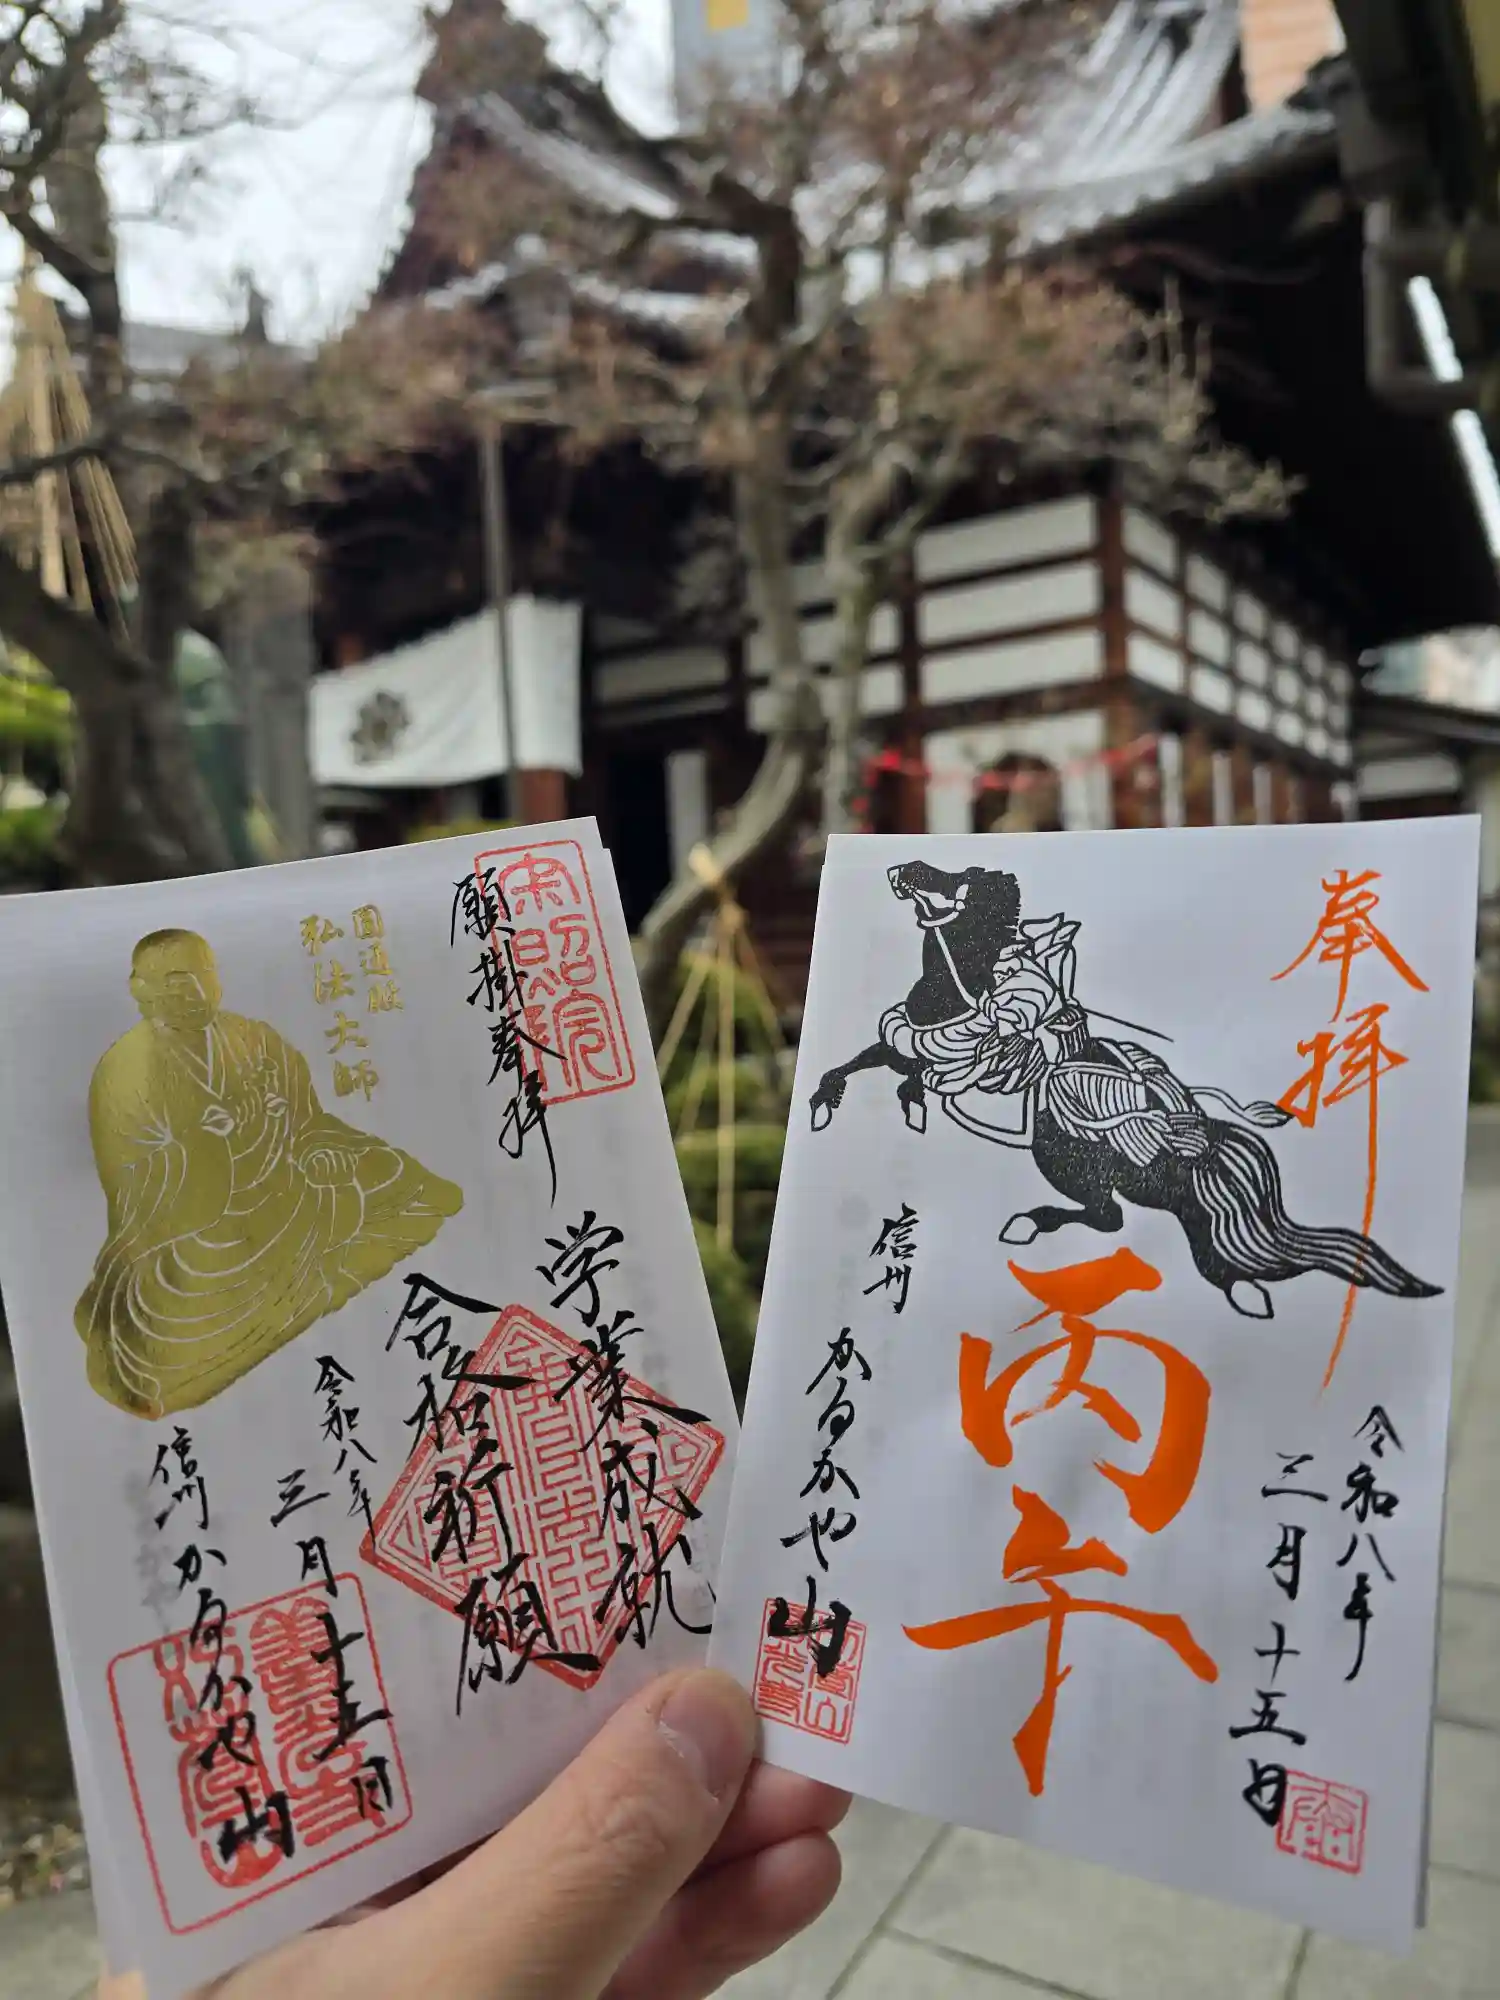 宋照院
願掛奉拝
圓通殿
弘法大師
学業成就
合格祈願
令和八年
三月十五日
信州かるかや山
奉拝
丙午
令和八年
三月十五日
信州
かるかや山